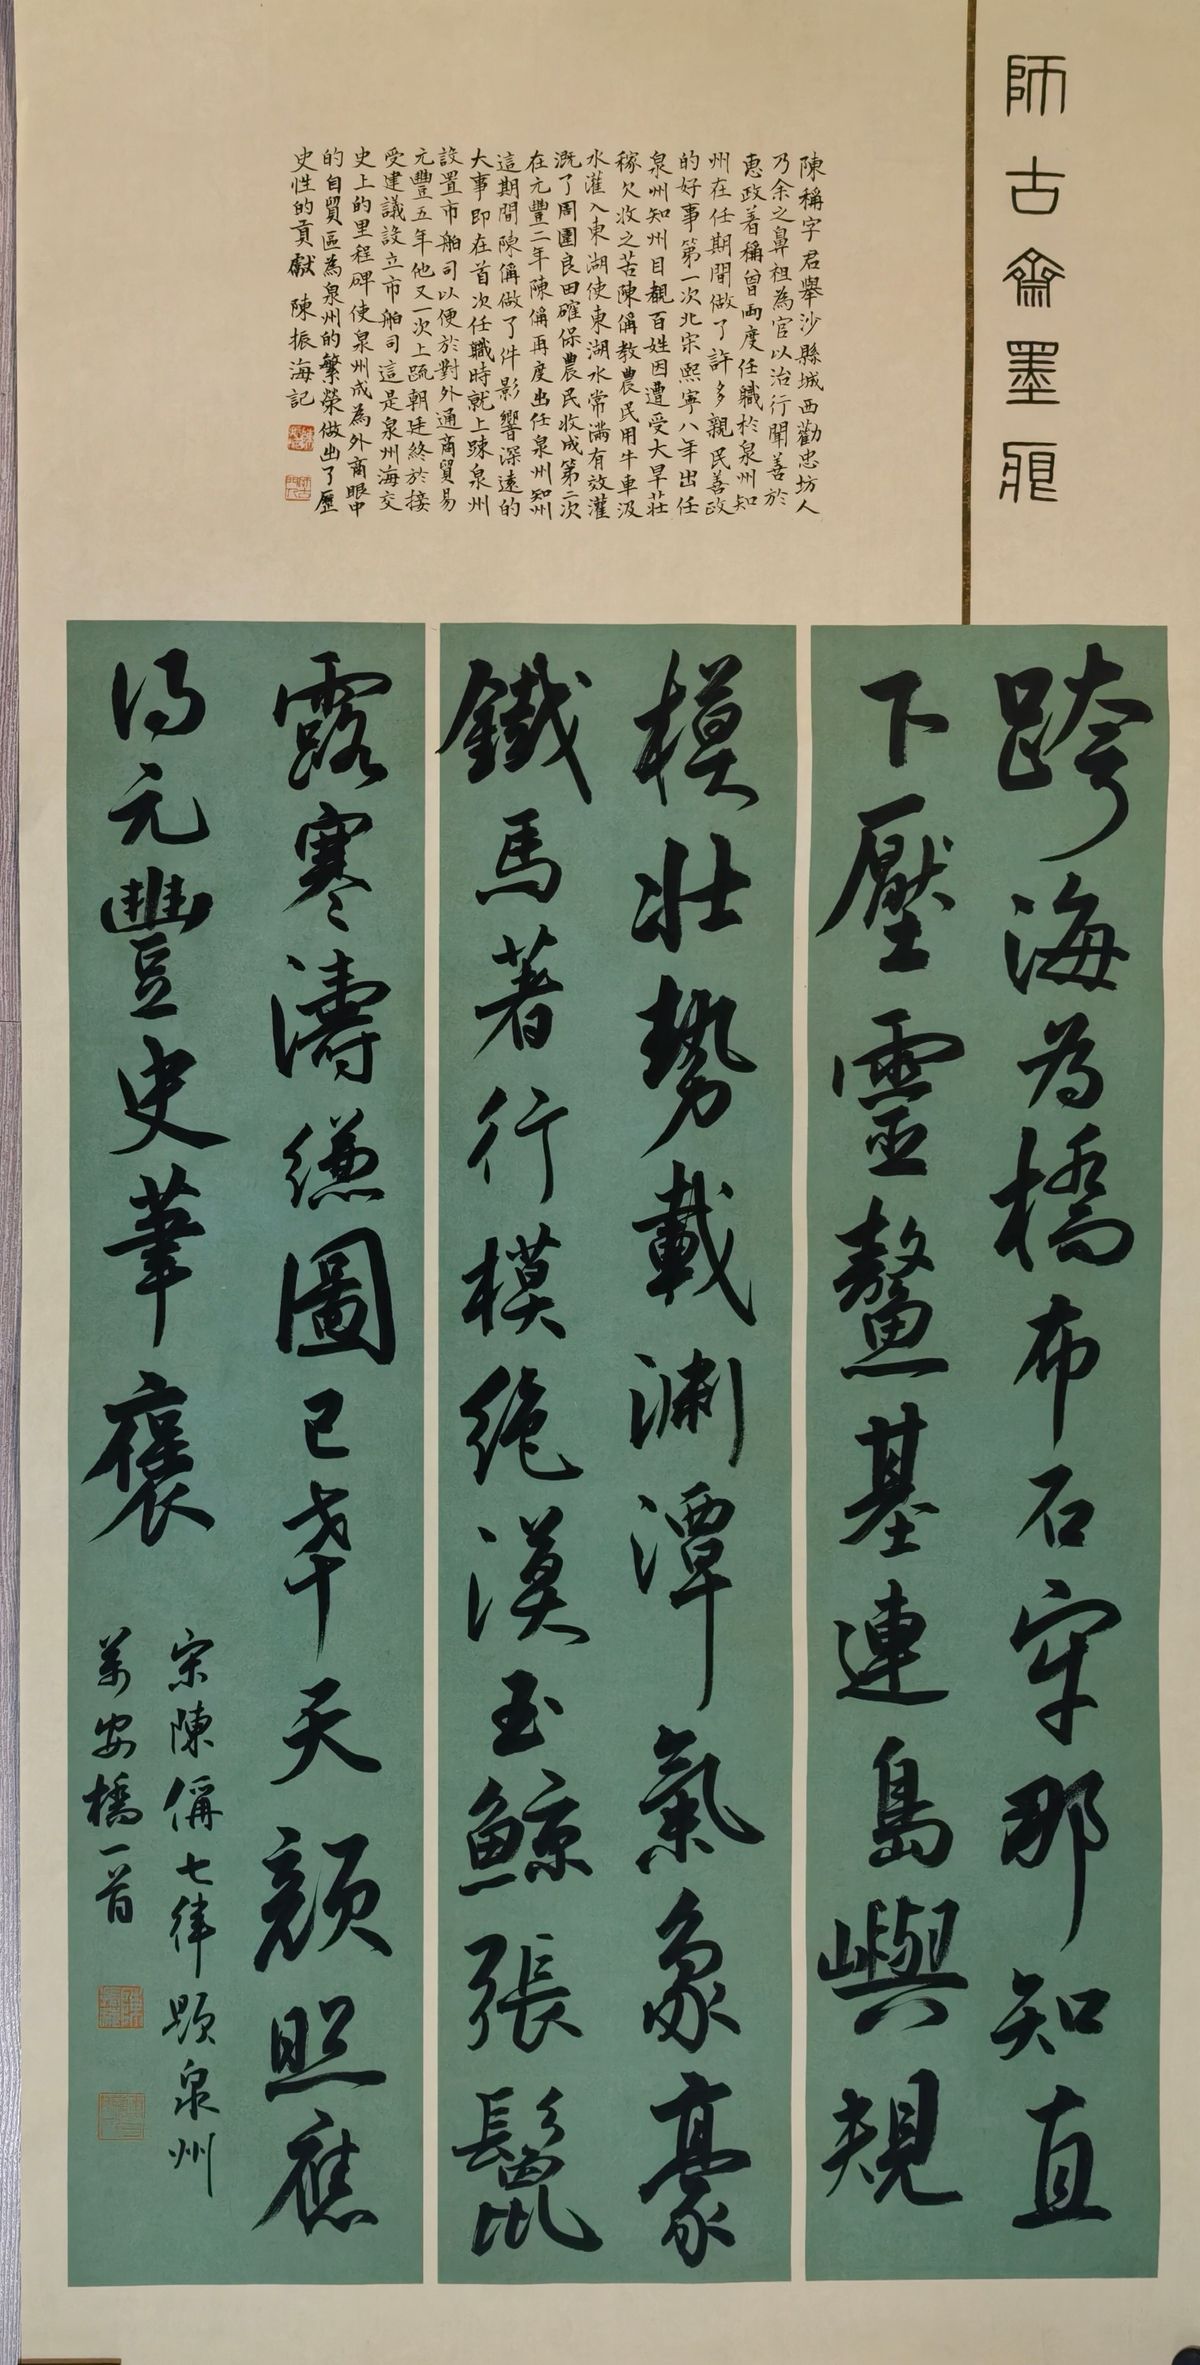 師古齋墨雅
陳稱字君舉沙縣城西勸忠坊人
乃余之鼻祖為官以治行聞善於
惠政著稱曾兩度任職於泉州知
州在任期間做了許多親民善政
的好事第一次北宋熙寧八年出任
泉州知州目覩百姓因遭受大旱莊
稼欠收之苦陳偁教農民用牛車汲
水灌入東湖使東湖水常滿有效灌
溉了周圍良田確保農民收成第二次
在元豐二年陳偁再度出任泉州知州
這期間陳偁做了件影響深遠的
大事即在首次任職時就上踈泉州
設置市舶司以便於對外通商貿易
元豐五年他又一次上疏朝廷終於接
受建議設立市舶司這是泉州海交
史上的里程碑使泉州成為外商眼中
的自貿區為泉州的繁榮做出了歷
史性的貢獻 陳振海記
跨海為橋布石牢那知直
下壓靈鼇基連島嶼規
模壯勢載淵潭氣象豪
鐵馬著行橫絕漠玉鯨張鬣
露寒濤縑圖已幸天顏照應
得元豐史筆褒
宋陳偁七律題泉州
萬安橋一首